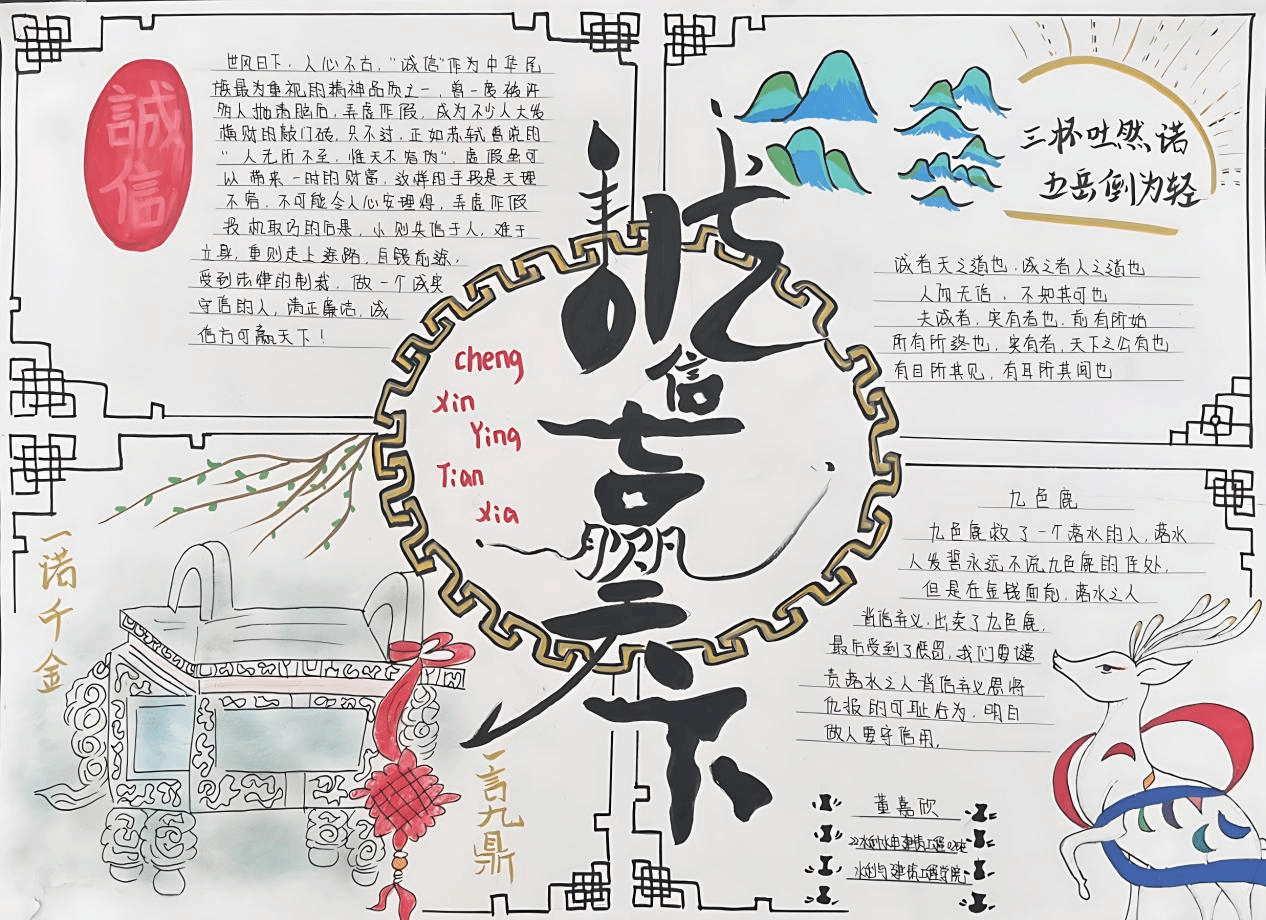 誠信
世风日下，人心不古，"诚信"作为中华民
族最为重视的精神品质之一，曾一度被许
多人抛诸脑后，弄虚作假，成为不少人大发
横财的敲门砖，只不过，正如苏轼曾说的
"人无所不至，惟天不容伪"，虚假虽可
以带来一时的财富，这样的手段是天理
不容，不可能令人心安理得，弄虚作假
投机取巧的后果，小则失信于人，难于
立身，重则走上迷路，自毁前途，
受到法律的制裁，做一个诚实
守信的人，清正廉洁，诚
信方可赢天下！
三杯吐然诺
五岳倒为轻
诚者天之道也，诚之者人之道也
人而无信，不知其可也
夫诚者，实有者也，前有所始
所有所终也，实有者，天下之公有也
有目所共见，有耳所共闻也
诚
信
吉
赢
天
下
cheng
xin
Ying
Tian
xia
一诺千金
一言九鼎
九色鹿
九色鹿救了一个落水的人，落水
人发誓永远不说九色鹿的住处，
但是在金钱面前，落水之人
背信弃义，出卖了九色鹿，
最后受到了惩罚，我们要谴
责落水之人背信弃义恩将
仇报的可耻行为，明白
做人要守信用。
董嘉欣
水利与建筑工程学院